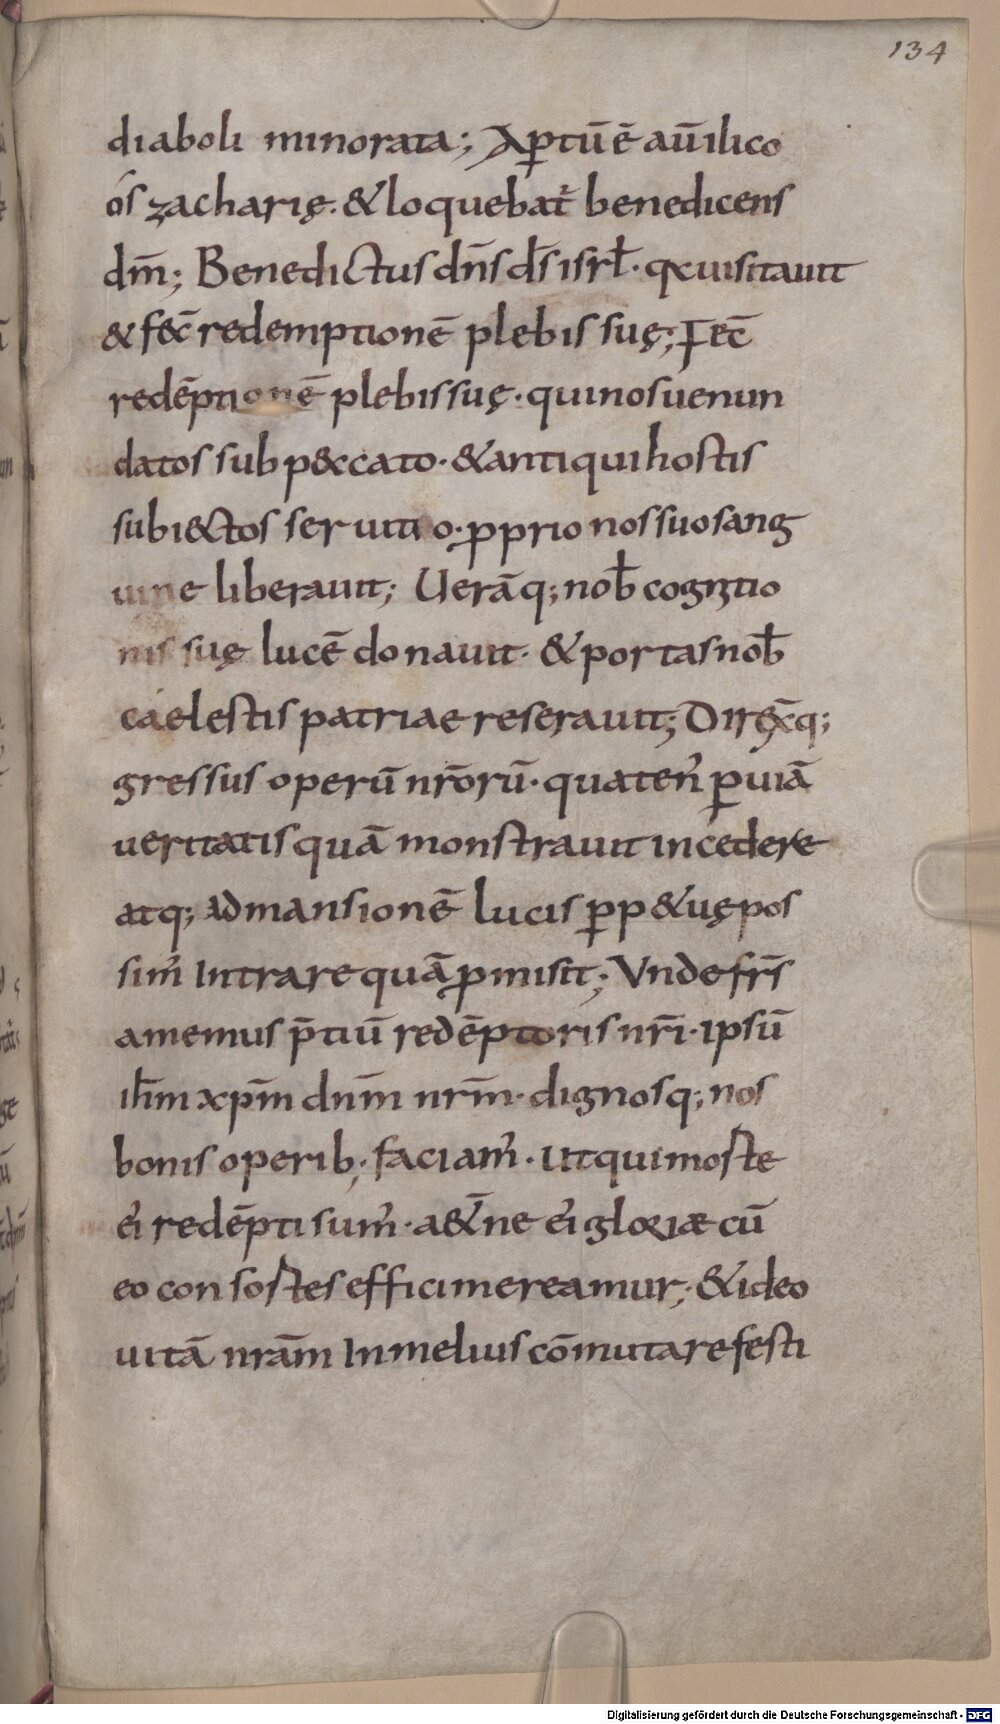 134
diaboli minorata; Apꝑtū ē aū ilico
ós zacharię. & loquebat̉ benedicens
dm̄; Benedictus dn̄s d̄s isrł. q̇a uisitauit
& fec̄ redemptionē plebis suę; Fec̄
redēptionē plebis suę. qui nos uenun
datos sub p&cato. & antiqui hostis
subi&ctos seruitio. ꝓprio nos suo sang
uine liberauit; Uerāq; nob̄ cognitio
nis suę lucē donauit. & portas nob̄
caelestis patriae reserauit; Direx̄q;
gressus operū nr̄orū. quaten᾽ ꝑ uiā
ueritatis quā monstrauit incedere
atq; ad mansionē lucis ꝑp&uę pos
sim᾽ intrare quā ꝓmisit; Vnde fr̄s
amemus p̄tiū redēptoris nr̄i. ipsū
ih̄m xp̄m dn̄m nr̄m. dignosq; nos
bonis operib; faciam᾽. ut qui morte
ei᾽ redēpti sum᾽. a&̄ne ei᾽ gloriæ cū
eo consortes effici mereamur; & ideo
uitā nr̄am in melius cōmutare festi
Digitalisierung gefördert durch die Deutsche Forschungsgemeinschaft - DFG